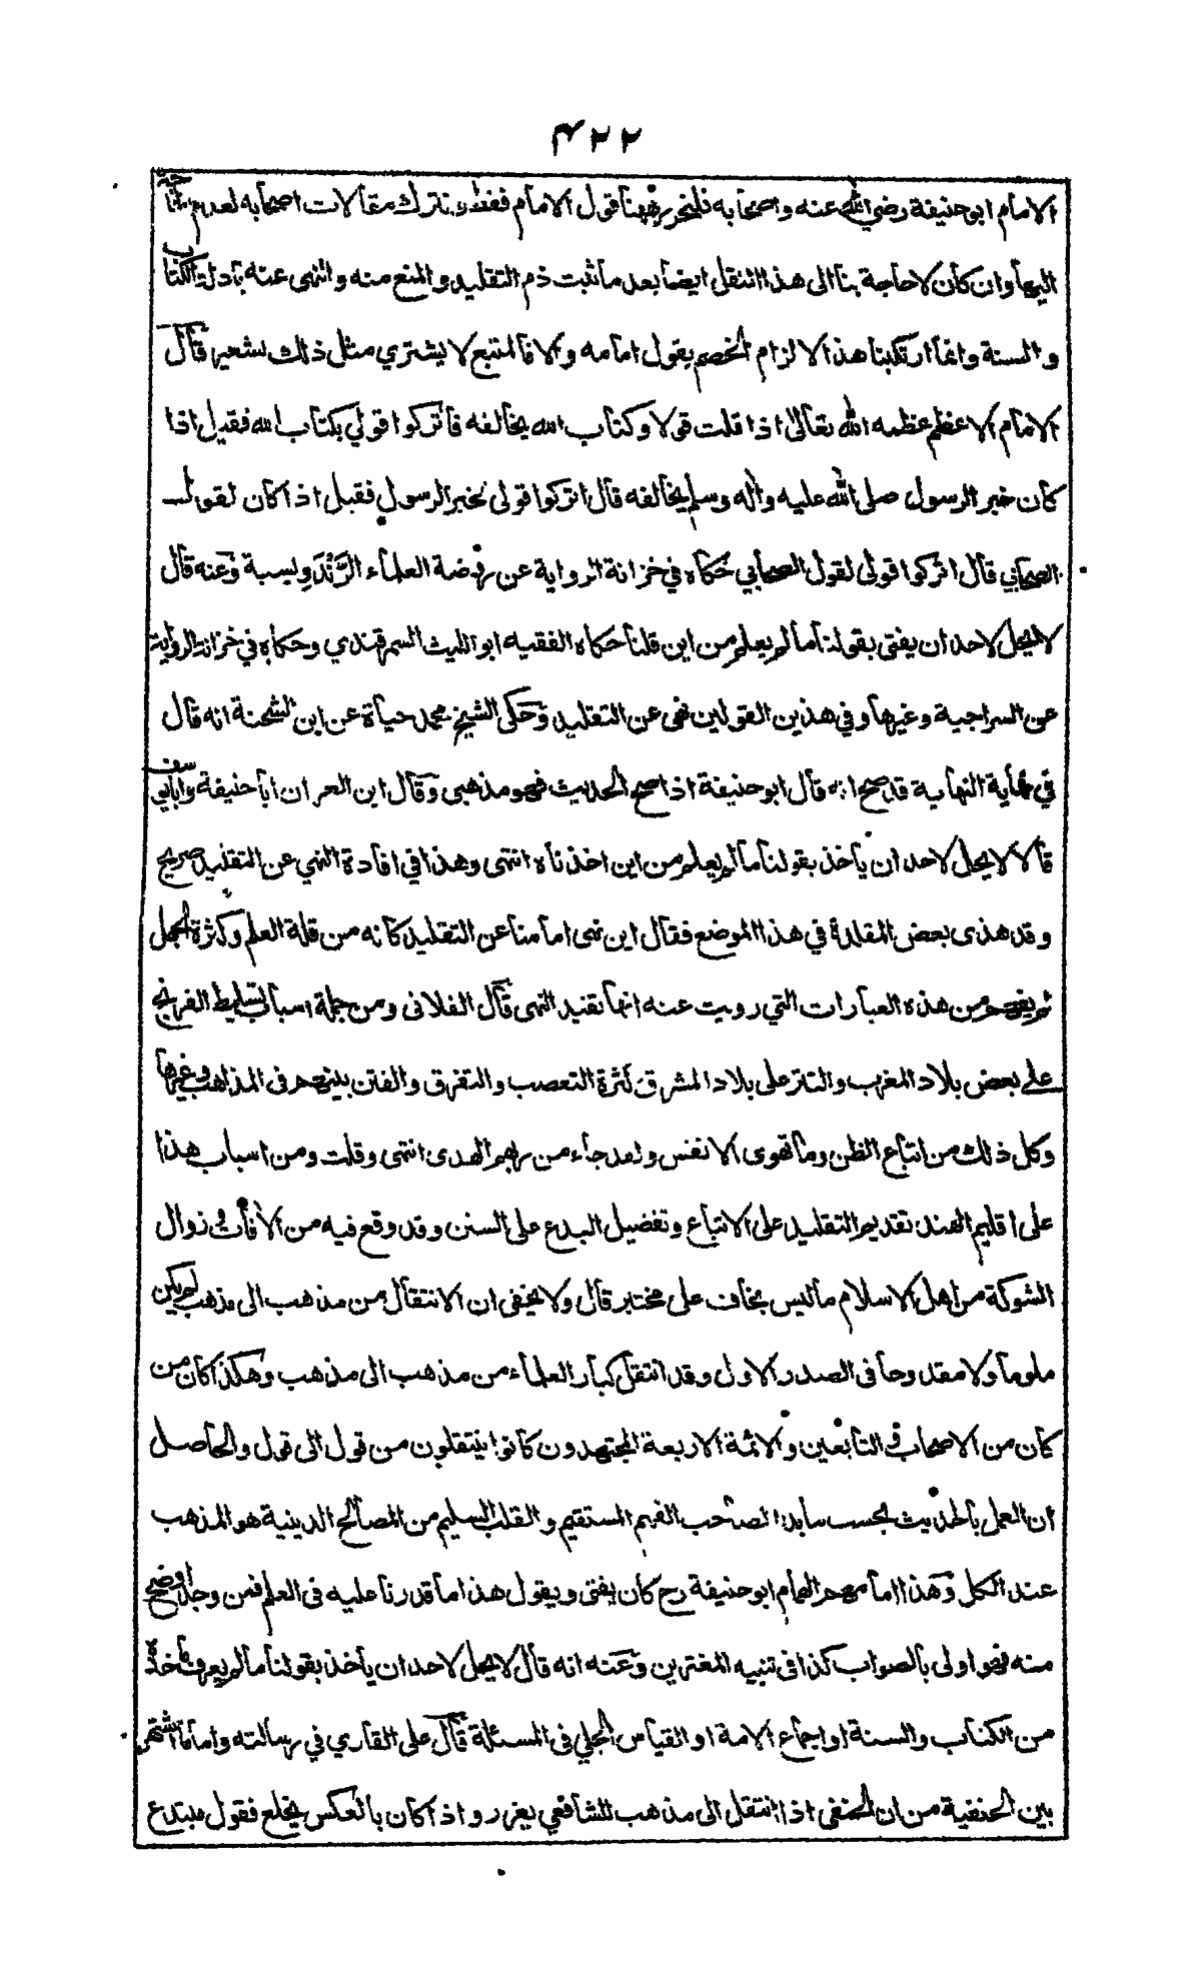 ۴۲۲
الامام ابو حنيفة رضي الله عنه واصحابه فلنحرر ههنا قول الامام فقط ونترك مقالات اصحابه لعدم حاجتنا
اليها وان كان لا حاجة بنا الى هذا النقل ايضا بعد ما ثبت ذم التقليد والمنع منه والنهى عنه بادلة الكتاب
والسنة وانما ارتكبنا هذا لالزام الخصم بقول امامه والا فالمتبع لا يشتري مثل ذلك بشعير قال
الامام الاعظم عظمه الله تعالى اذا قلت قولا وكتاب الله يخالفه فاتركوا قولي بكتاب الله فقيل اذا
كان خبر الرسول صلى الله عليه واله وسلم يخالفه قال اتركوا قولى بخبر الرسول فقيل اذا كان لقول
الصحابي قال اتركوا قولى لقول الصحابي حكاه في خزانة الرواية عن روضة العلماء الزندويسية وعنه قال
لا يحل لاحد ان يفتى بقولنا ما لم يعلم من اين قلنا حكاه الفقيه ابو الليث السمرقندي وحكاه في خزانة الرواية
عن السراجية وغيرها وفي هذين القولين نهى عن التقليد وحكى الشيخ محمد حياة عن ابن الشحنة انه قال
في نهاية النهاية قد صح انه قال ابو حنيفة اذا صح الحديث فهو مذهبى وقال ابن العز ان ابا حنيفة وابا يوسف
قالا لا يحل لاحد ان يأخذ بقولنا ما لم يعلم من اين اخذناه انتهى وهذا في افادة النهي عن التقليد صريح
وقد هذى بعض المقلدة في هذا الموضع فقال اين نهى امامنا عن التقليد كانه من قلة العلم وكثرة الجهل
لم يفهم من هذه العبارات التي رويت عنه انها تفيد النهى قال الفلانى ومن جملة اسباب تسليط الفرنج
على بعض بلاد المغرب والتتر على بلاد المشرق كثرة التعصب والتفرق والفتن بينهم فى المذاهب وغيرها
وكل ذلك من اتباع الظن وما تهوى الانفس ولقد جاءهم من ربهم الهدى انتهى وقلت ومن اسباب هذا
على اقليم الهند تقديم التقليد على الاتباع وتفضيل البدع على السنن وقد وقع فيه من الآفات وزوال
الشوكة من اهل الاسلام ما ليس بخاف على مختبر قال ولا يخفى ان الانتقال من مذهب الى مذهب لم يكن
ملوما ولا مقدوحا فى الصدر الاول وقد انتقل كبار العلماء من مذهب الى مذهب وهكذا كان من
كان من الاصحاب والتابعين والائمة الاربعة المجتهدون كانوا ينتقلون من قول الى قول والحاصل
ان العمل بالحديث بحسب ما بدا لصاحب الفهم المستقيم والقلب السليم من المصالح الدينية هو المذهب
عند الكل وهذا امامهم الهمام ابو حنيفة رح كان يفتى ويقول هذا ما قدرنا عليه فى العلم فمن وجد اوضح
منه فهو اولى بالصواب كذا فى تنبيه المغترين وعنه انه قال لا يحل لاحد ان يأخذ بقولنا ما لم يعرف مأخذه
من الكتاب والسنة او اجماع الامة او القياس الجلي فى المسئلة قال على القاري في رسالته واما ما اشتهر
بين الحنفية من ان الحنفى اذا انتقل الى مذهب الشافعي يعزر واذا كان بالعكس يخلع فقول مبتدع